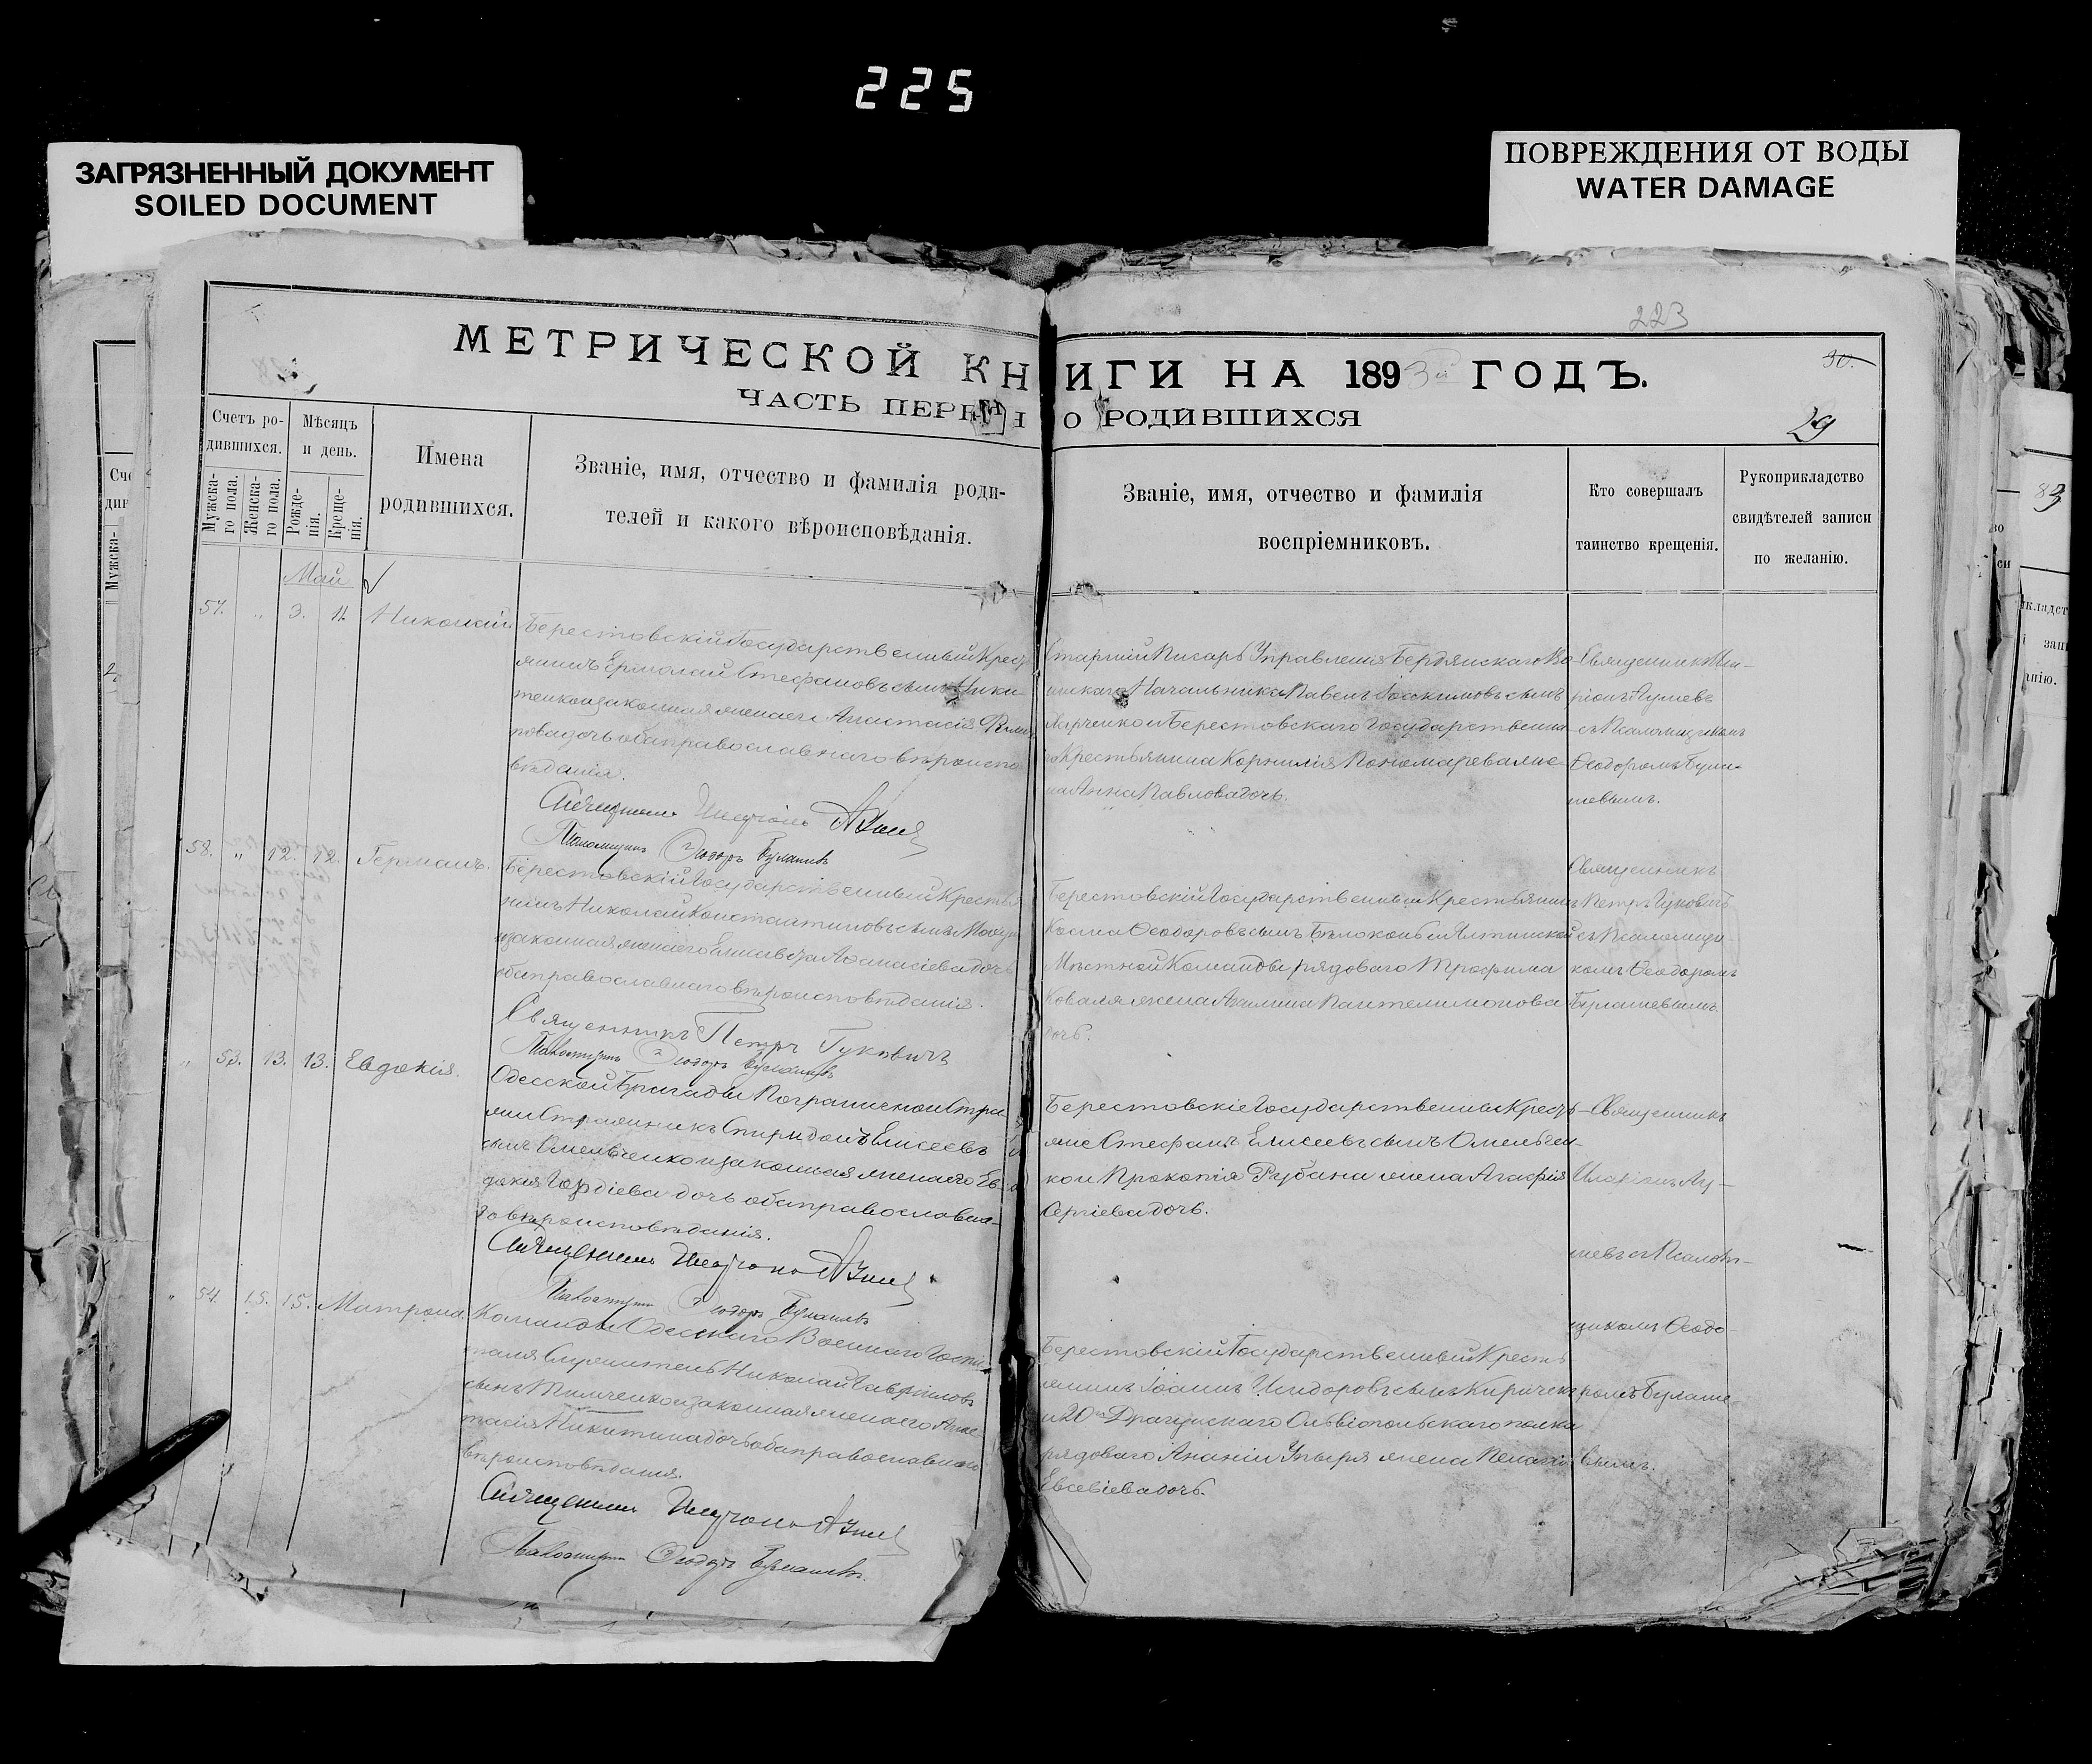 225
ЗАГРЯЗНЕННЫЙ ДОКУМЕНТ
SOILED DOCUMENT
ПОВРЕЖДЕНИЯ ОТ ВОДЫ
WATER DAMAGE
223
МЕТРИЧЕСКОЙ КНИГИ НА 1893й ГОДЪ.
30.
ЧАСТЬ ПЕРВАЯ О РОДИВШИХСЯ
29
Счетъ ро-
дившихся.
Мужска-
го пола.
Женска-
го пола.
Мѣсяцъ
и день.
Рожде-
нія.
Креще-
нія.
Имена
родившихся.
Званіе, имя, отчество и фамилія роди-
телей и какого вѣроисповѣданія.
Званіе, имя, отчество и фамилія
воспріемниковъ.
Кто совершалъ
таинство крещенія.
Рукоприкладство
свидѣтелей записи
по желанію.
Май
57. „ 3. 11. Николай
Берестовскій Государственный Крестья
нинъ Ермолай Стефановъ сынъ Ники
тенко и законная жена его Анастасія
пова дочь оба православнаго вѣроиспо
вѣданія.
Священникъ Иларіонъ
Псаломщикъ Ѳеодоръ Булашевъ
Старшій Писарь Управленія Бердянскаго Во
инскаго Начальника Павелъ Іоакимовъ сынъ
Харченко и Берестовскаго Государственна
го Крестьянина Корнилія Пономарева же
на Анна Павлова дочь.
Священникъ Ила-
ріонъ Лушевъ
съ Псаломщикомъ
Ѳеодоромъ Була-
шевымъ.
58. „ 12. 12. Германъ.
Берестовскій Государственный Крестья
нинъ Николай Константиновъ сынъ
и законная жена его Елисавета Аѳанасіева дочь
оба православнаго вѣроисповѣданія.
Священникъ Петръ Гуковичъ
Псаломщикъ Ѳеодоръ Булашевъ
Берестовскій Государственный Крестьянинъ
Косма Ѳеодоровъ сынъ Бѣлоконь и Ялтинской
Мѣстной Команды рядоваго Трофима
Коваля жена Акилина Пантелимонова
дочь.
Священникъ
Петръ Гуковичъ
съ Псаломщи-
комъ Ѳеодоромъ
Булашевымъ.
„ 53. 13. 13. Евдокія.
Одесской Бригады Пограничной Стра
жи Стражникъ Спиридонъ Елисеевъ
сынъ Омельченко и законная жена его Ев-
докія Гордіева дочь оба православна-
го вѣроисповѣданія.
Священникъ Иларіонъ
Псаломщикъ Ѳеодоръ Булашевъ
Берестовскіе Государственные Крестья
не Стефанъ Елисеевъ сынъ Омельчен-
ко и Прокопія Рубана жена Агафія
Сергіева дочь.
Священникъ
Иларіонъ Лу-
шевъ съ Псалом-
щикомъ Ѳеодо-
ромъ Булаше
вымъ.
„ 54. 15. 15. Матрона.
Команды Одесскаго Военнаго Госпи
таля Служитель Николай Гавріиловъ
сынъ Тимченко и законная жена его Анас
тасія Никитина дочь оба православнаго
вѣроисповѣданія.
Священникъ Иларіонъ
Псаломщикъ Ѳеодоръ Булашевъ.
Берестовскій Государственный Кресть
янинъ Іоаннъ Исидоровъ сынъ Киричек
и 20го Драгунскаго Ольвіопольскаго полка
рядоваго Ананіи Упыря жена Пелагія
Евсевіева дочь.